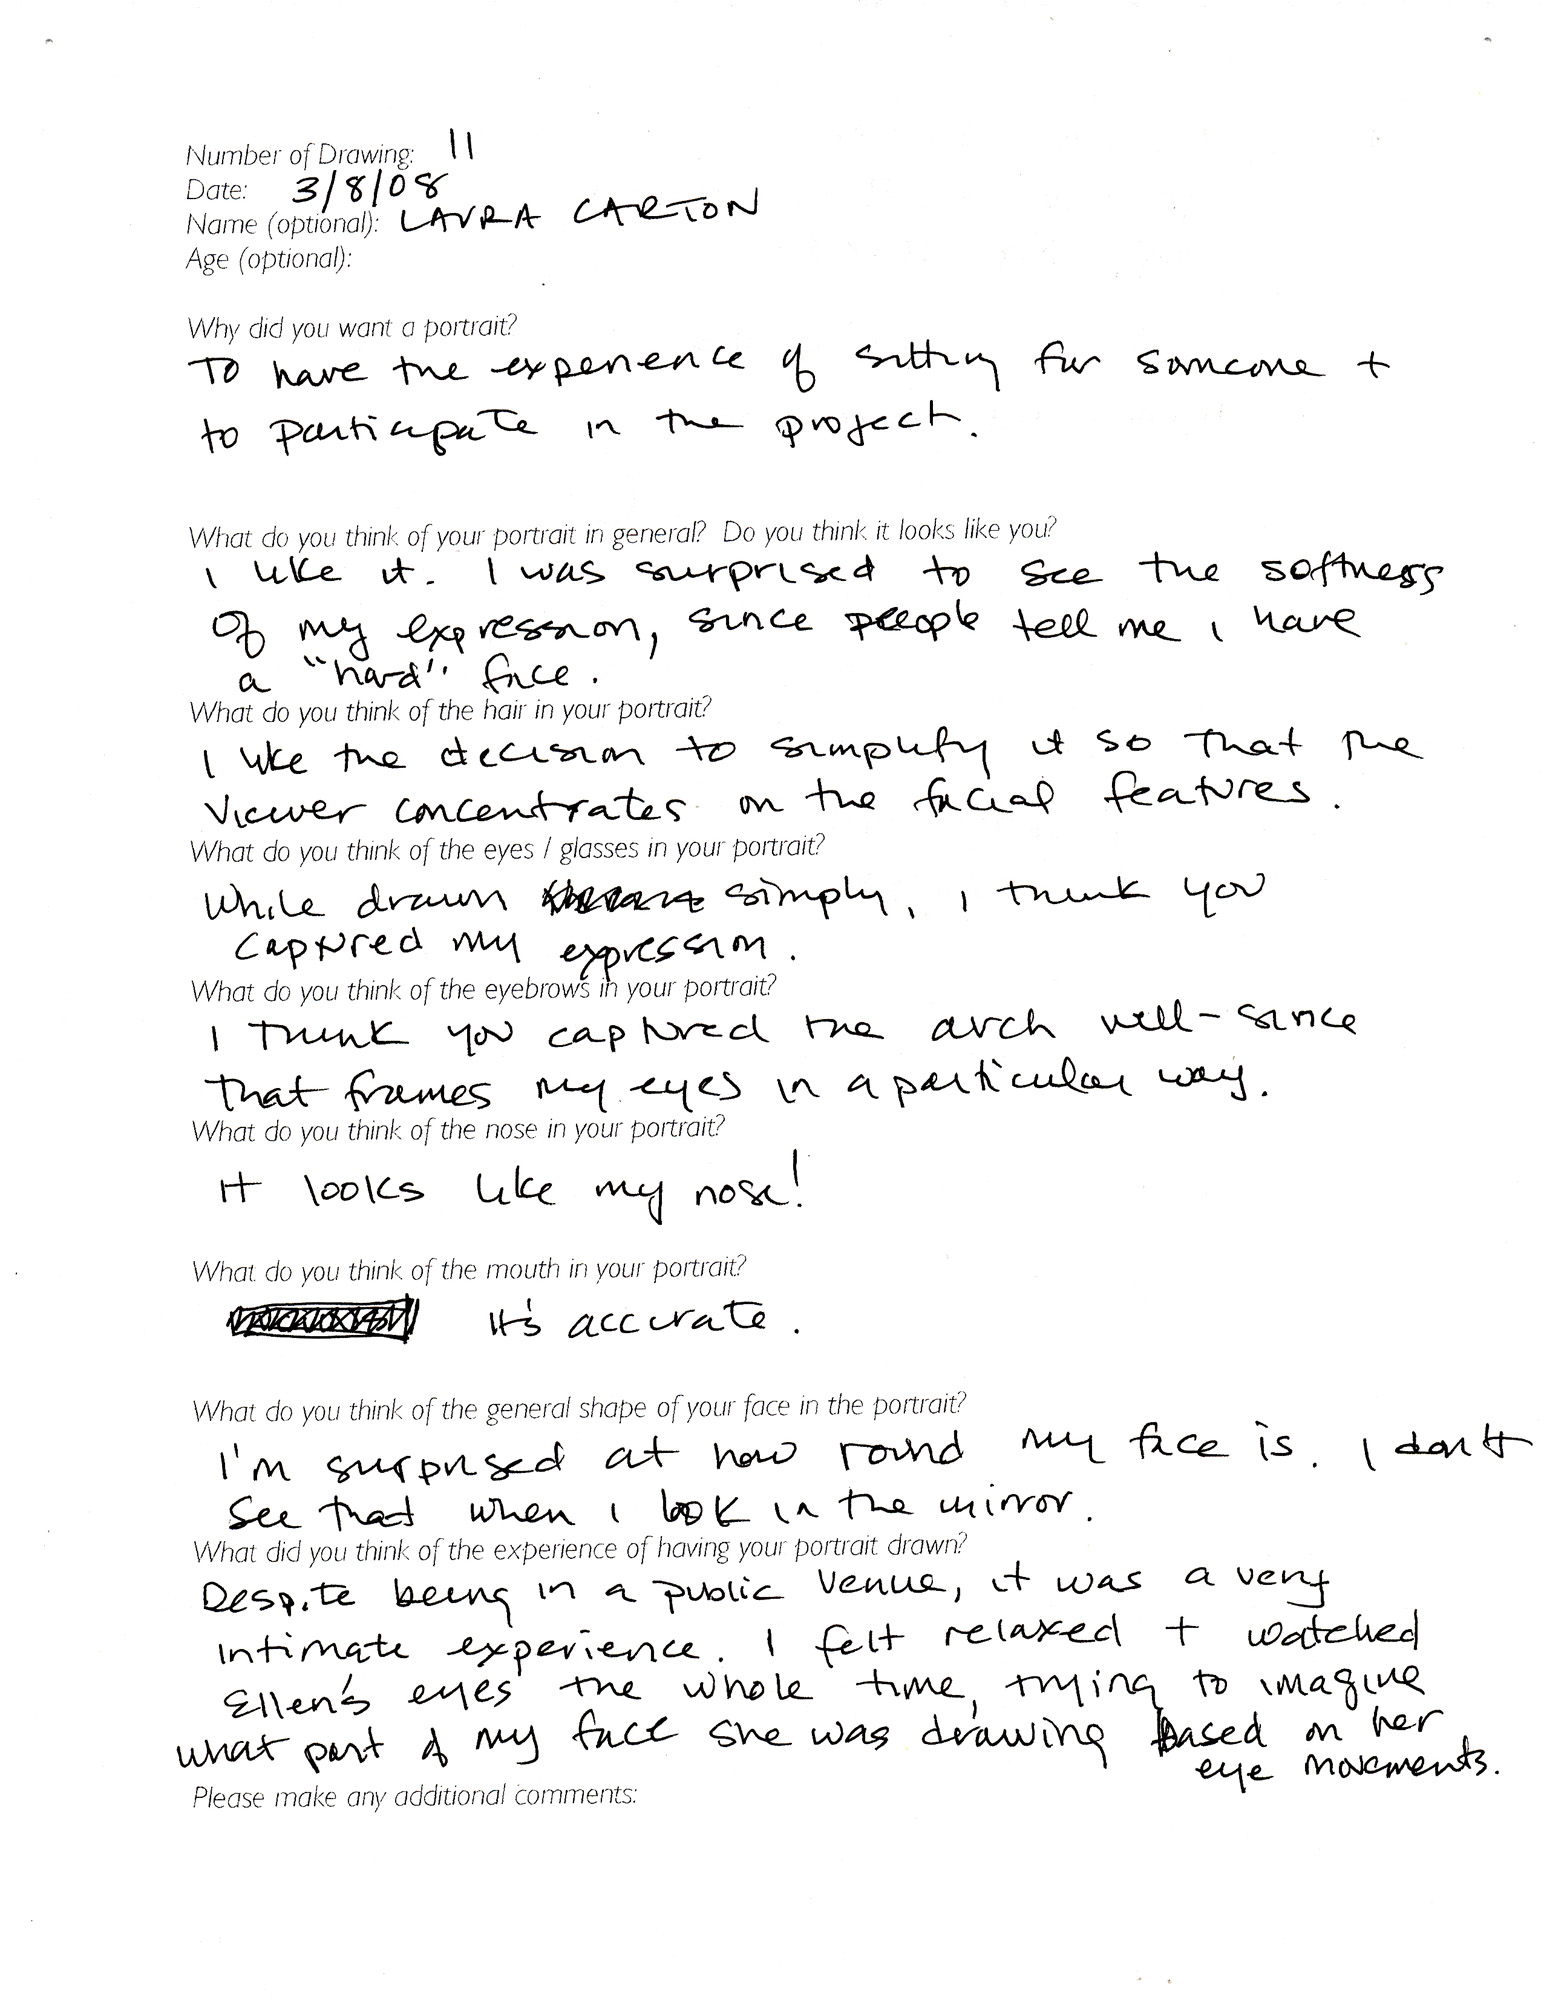 Number of Drawing: 11
Date: 3/8/08
Name (optional): LAURA CARTON
Age (optional):
Why did you want a portrait?
To have the experience of sitting for someone +
to participate in the project.
What do you think of your portrait in general? Do you think it looks like you?
I like it. I was surprised to see the softness
of my expression, since people tell me I have
a "hard" face.
What do you think of the hair in your portrait?
I like the decision to simplify it so that the
viewer concentrates on the facial features.
What do you think of the eyes / glasses in your portrait?
While drawn simply, I think you
captured my expression.
What do you think of the eyebrows in your portrait?
I think you captured the arch well - since
that frames my eyes in a particular way.
What do you think of the nose in your portrait?
It looks like my nose!
What do you think of the mouth in your portrait?
It's accurate.
What do you think of the general shape of your face in the portrait?
I'm surprised at how round my face is. I don't
see that when I look in the mirror.
What did you think of the experience of having your portrait drawn?
Despite being in a public venue, it was a very
intimate experience. I felt relaxed + watched
Ellen's eyes the whole time, trying to imagine
what part of my face she was drawing based on her
eye movements.
Please make any additional comments: